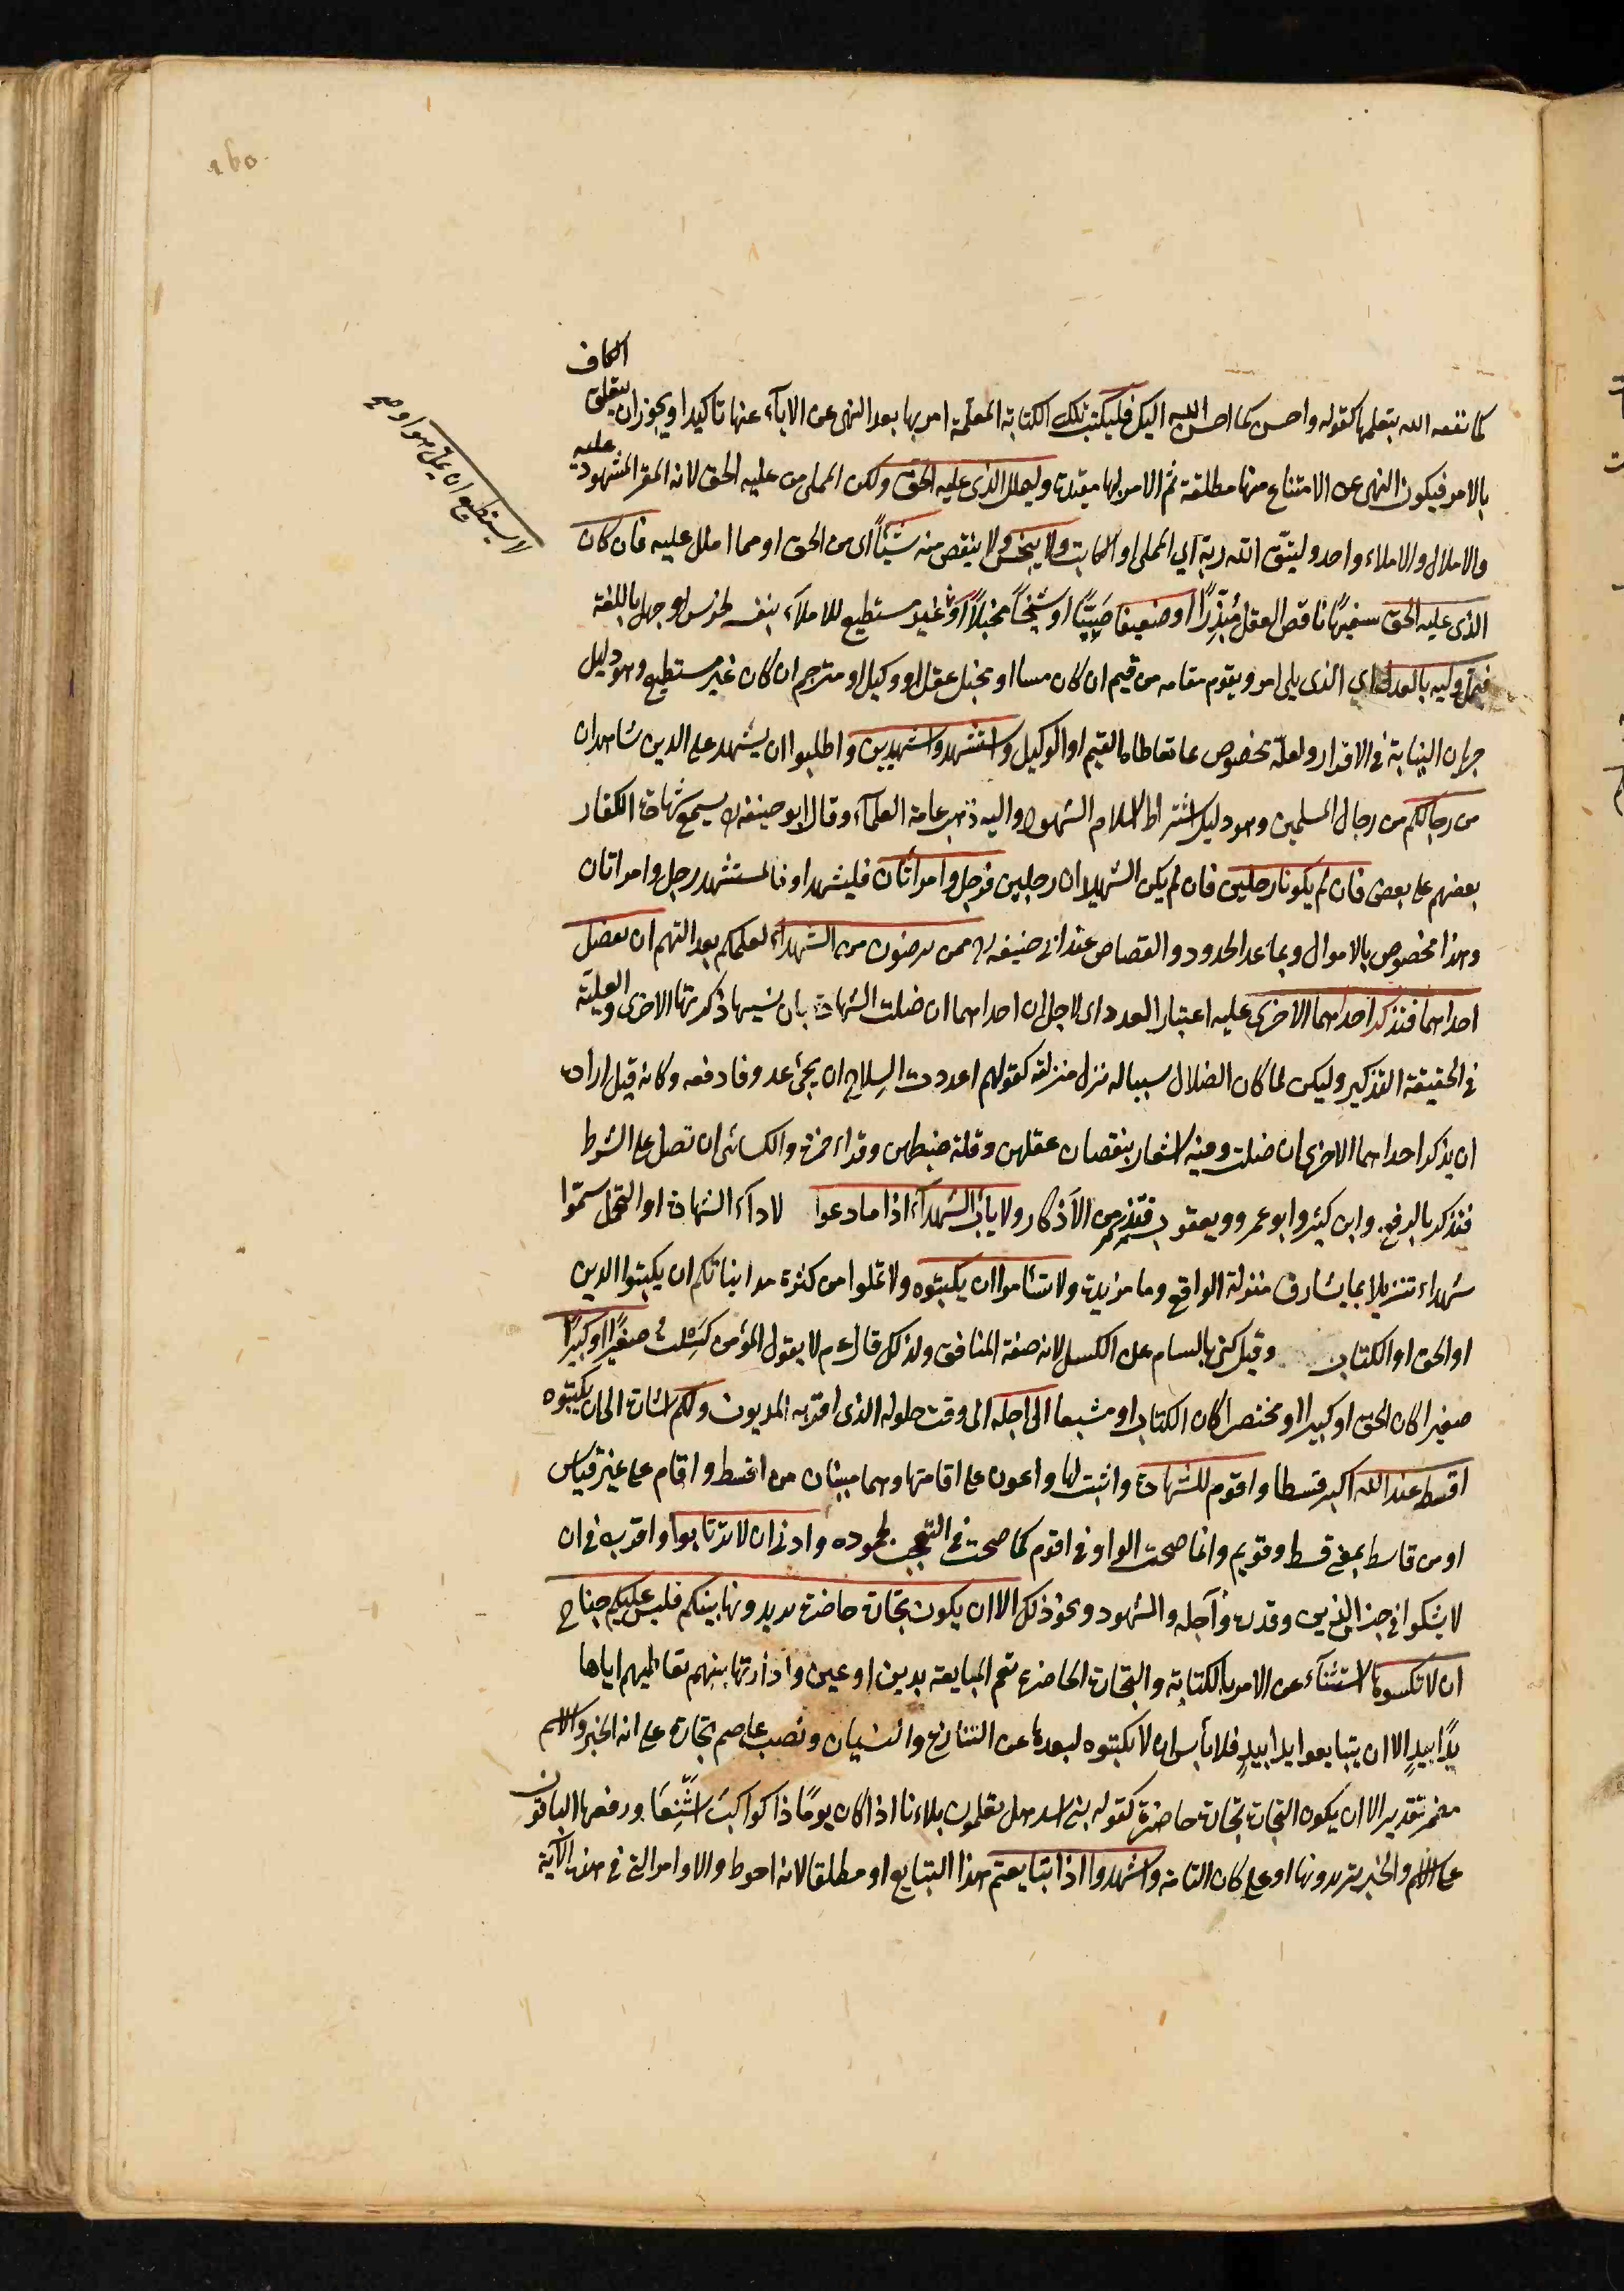 160
الكاف
كما نفعه الله بتعلمها كقوله واحسن كما احسن الله اليك فليكتب تلك الكتابة المعلمة امر بها بعد النهى عن الاباء عنها تاكيدا ويجوز ان يتعلق
بالامر فيكون النهى عن الامتناع منها مطلقة ثم الامر بها مقيدة وليملل الذى عليه الحق وليكن المملى من عليه الحق لانه المقر المشهود عليه
والاملال والاملاء واحد وليتق الله ربه اي المملى او الكاتب ولا يبخس ولا ينقص منه شيئا اى من الحق او مما املل عليه فان كان
الذى عليه الحق سفيها ناقص العقل مبذرا او ضعيفا صبيا او شيخا مختلا او غير مستطيع للاملاء بنفسه لخرس او جهل باللغة
لا يستطيع ان يمل هو او صح
فليملل وليه بالعدل اي الذى يلى امره ويقوم مقامه من قيم ان كان صبيا او مختل عقل او وكيل او مترجم ان كان غير مستطيع وهو دليل
جريان النيابة فى الاقرار ولعله مخصوص بما تعاطاه القيم او الوكيل واستشهدوا شهيدين واطلبوا ان يشهد على الدين شاهدان
من رجالكم من رجال المسلمين وهو دليل اشتراط اسلام الشهود واليه ذهب عامة العلماء وقال ابو حنيفة رح يسمع شهادة الكفار
بعضهم على بعض فان لم يكونا رجلين فان لم يكن الشهيدان رجلين فرجل وامراتان فليشهد او فالمستشهد رجل وامراتان
وهذا مخصوص بالاموال وبما عدا الحدود والقصاص عند ابى حنيفة رح ممن ترضون من الشهداء لعلمكم بعدالتهم ان تضل
احداهما فتذكر احداهما الاخرى علة اعتبار العدد اى لاجل ان احداهما ان ضلت الشهادة بان نسيها ذكرتها الاخرى والعلة
فى الحقيقة التذكير وليكن لما كان الضلال سببا له نزل منزلته كقولهم اعددت السلاح ان يجئ عدو فادفعه وكانه قيل ارادة
ان يذكر احداهما الاخرى ان ضلت وفيه اشعار بنقصان عقلهن وقلة ضبطهن وقراء حمزة والكسائى ان تضل على الشرط
فتذكر بالرفع وابن كثير وابو عمرو ويعقوب فتذكر من الاذكار ولا يأب الشهداء اذا ما دعوا لاداء الشهادة او التحمل سموا
شهداء تنزيلا بما يشارف منزلة الواقع وما مزيدة ولا تسأموا ان يكتبوه ولا تملوا من كثرة مدايناتكم ان يكتبوا الدين
او الحق او الكتاب وقيل كنى بالسام عن الكسل لانه صفة المنافق ولذلك قال عم لا يقول المؤمن كسلت صغيرا او كبيرا
صغيرا كان الحق او كبيرا او مختصرا كان الكتاب او مشبعا الى اجله الى وقت حلوله الذى اقر به المديون ذلكم اشارة الى ان يكتبوه
اقسط عند الله اكبر قسطا واقوم للشهادة واثبت لها واعون على اقامتها وهما مبنيان من اقسط واقام على غير قياس
او من قاسط بمعنى قسط وقويم وانما صحت الواو فى اقوم كما صحت فى التعجب لجموده وادنى ان لا ترتابوا واقرب فى ان
لا يشكوا فى جنس الدين وقدره وآجله والشهود ونحو ذلك الا ان يكون تجارة حاضرة تديرونها بينكم فليس عليكم جناح
ان لا تكتبوها استثناء عن الامر بالكتابة والتجارة الحاضرة تعم المبايعة بدين او عين وادارتها بينهم تعاطيهم اياها
يدا بيد الا ان يتبايعوا يدا بيد فلا بأس ان لا يكتبوه لبعدها عن التنازع والنسيان ونصب عاصم تجارة على انه الخبر والاسم
مضمر تقديره الا ان يكون التجارة تجارة حاضرة كقوله بنى اسد هل تعلمون بلاءنا اذا كان يوما ذا كواكب اشنعا ورفعها الباقون
على الاسم والخبر تديرونها او على كان التامة واشهدوا اذا تبايعتم هذا التبايع او مطلقا لانه احوط والاوامر التى فى هذه الآية